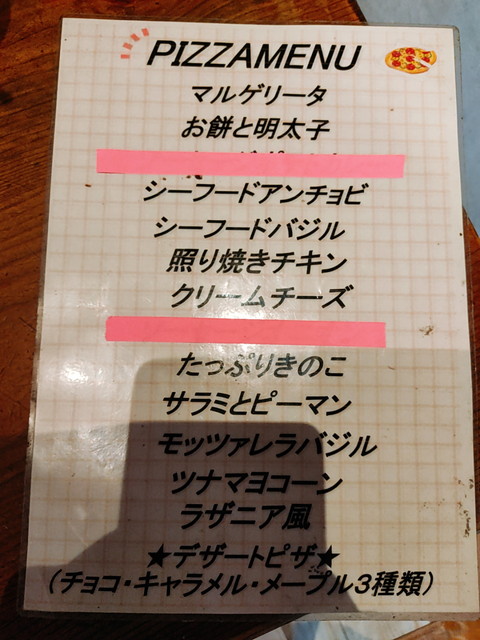 PIZZAMENU
マルゲリータ
お餅と明太子
シーフードアンチョビ
シーフードバジル
照り焼きチキン
クリームチーズ
たっぷりきのこ
サラミとピーマン
モッツァレラバジル
ツナマヨコーン
ラザニア風
★デザートピザ★
(チョコ・キャラメル・メープル3種類)